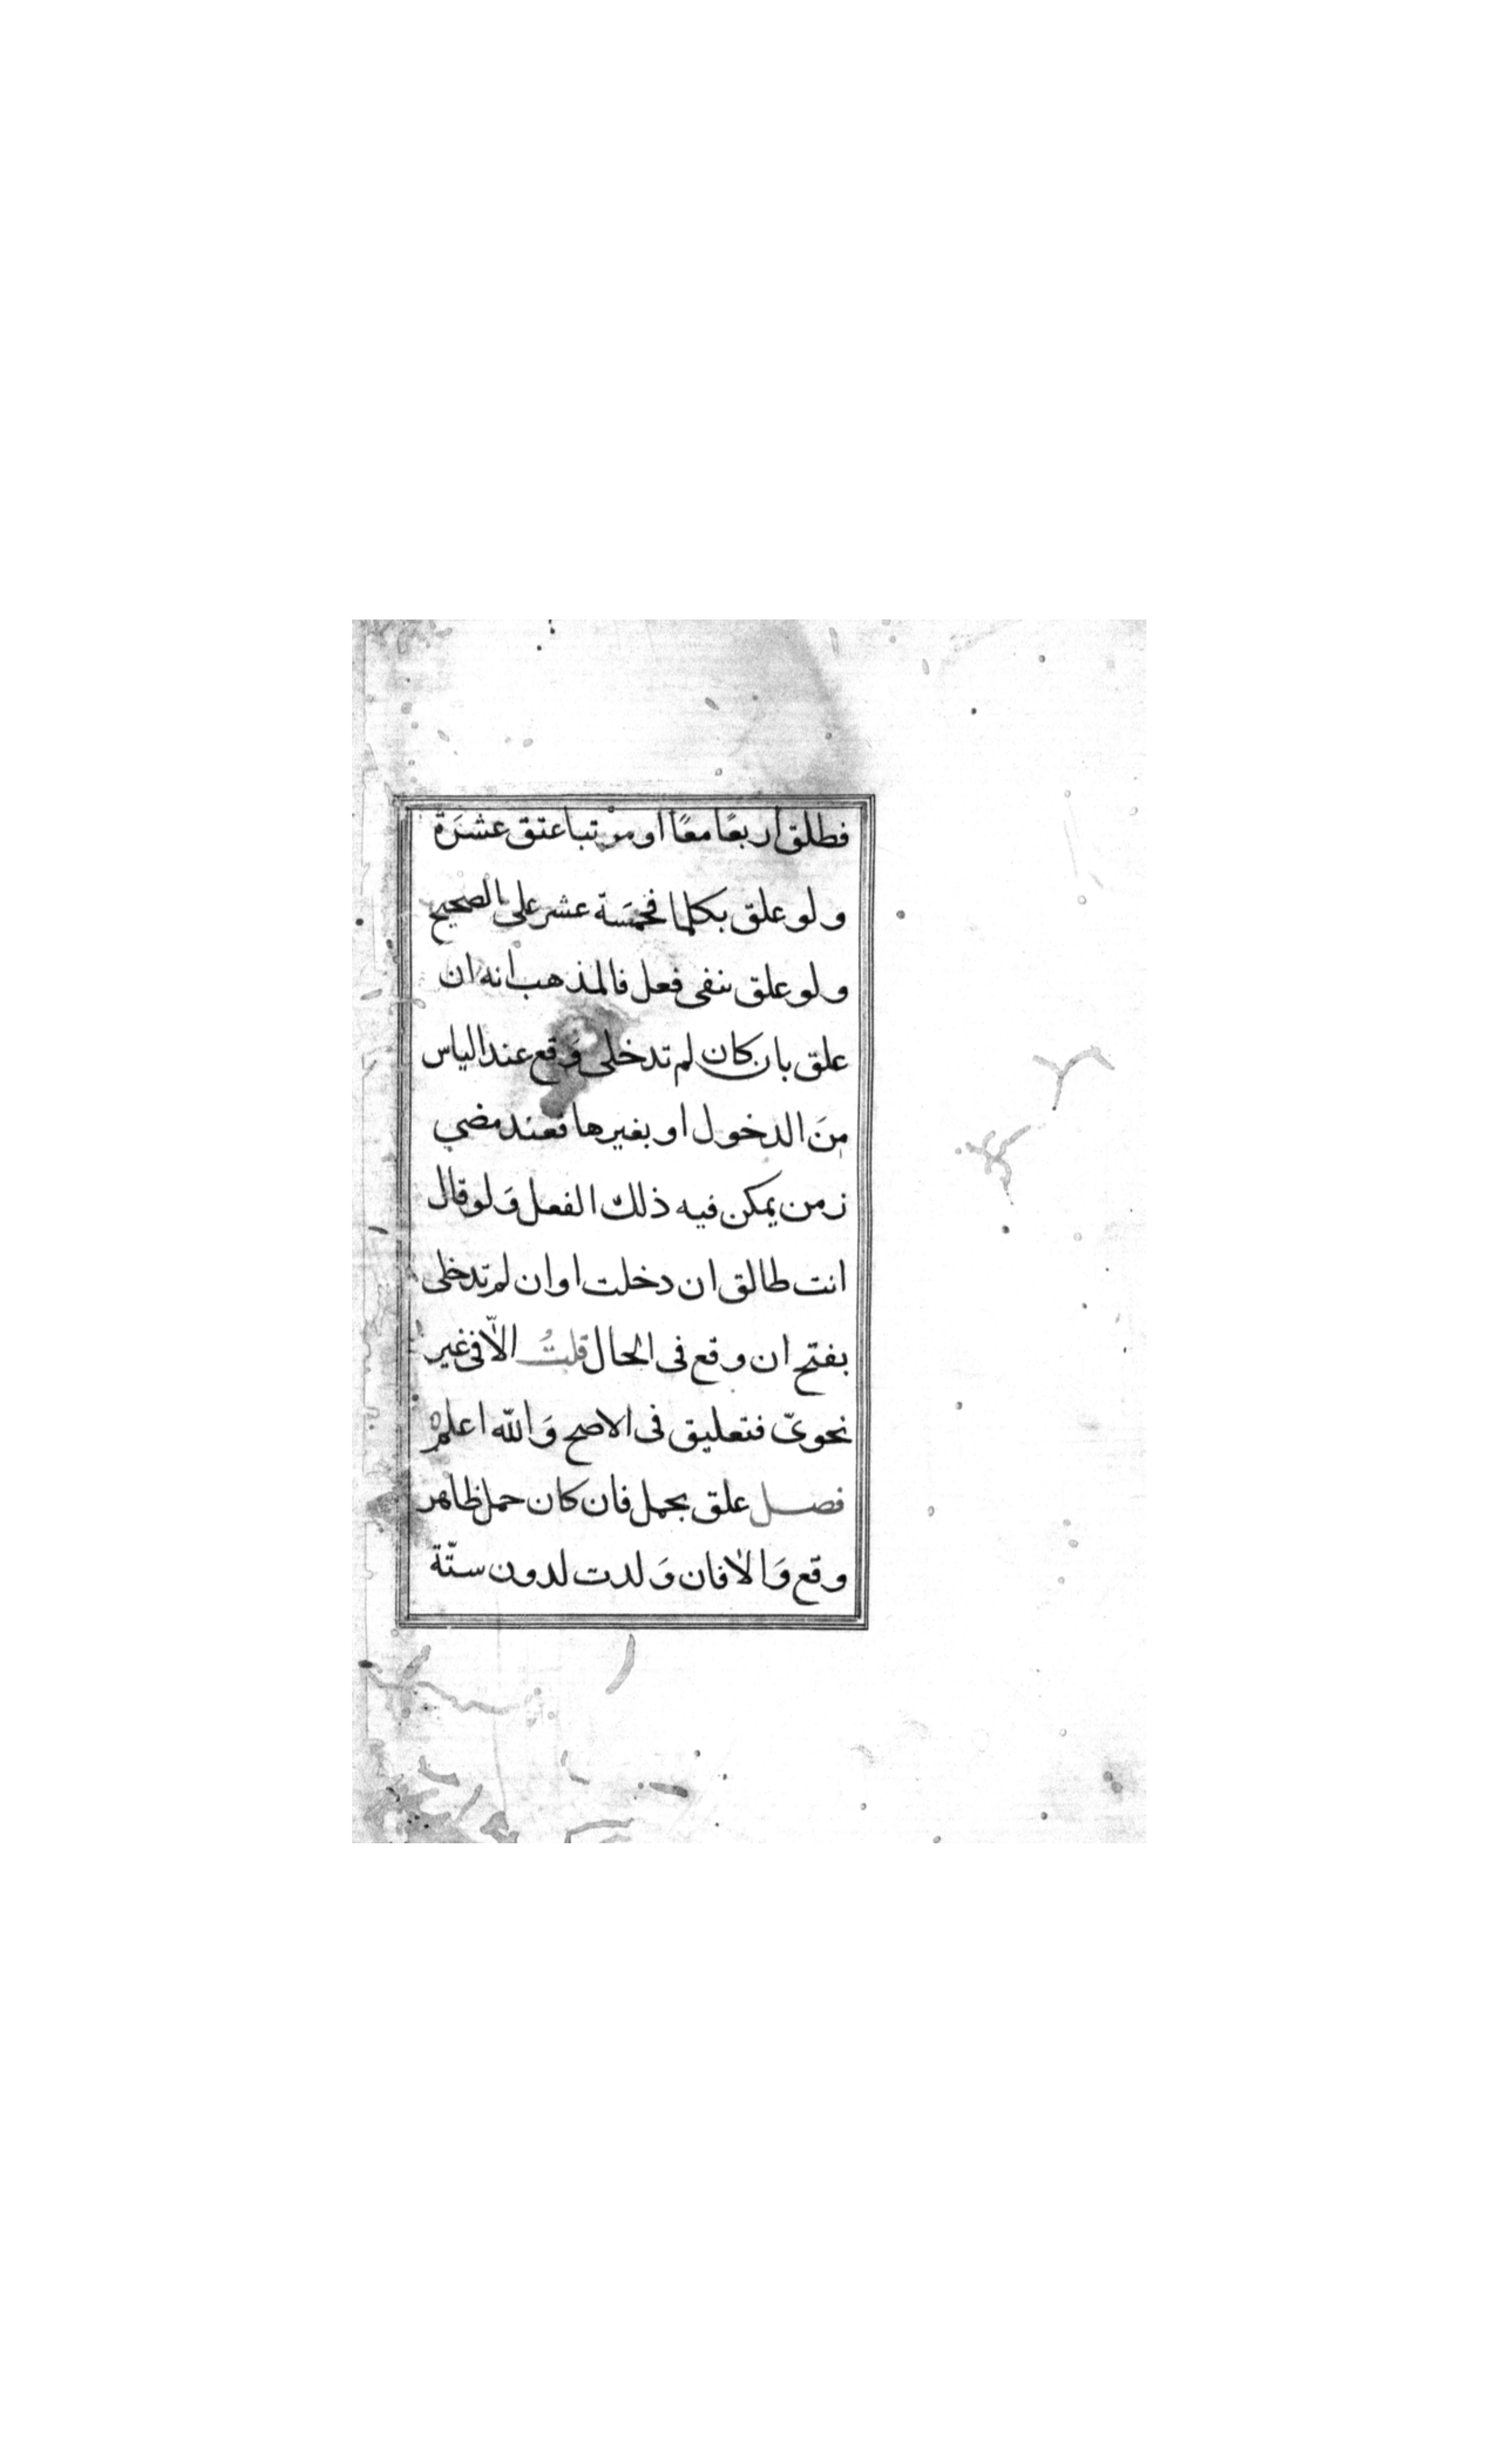 فطلق اربعًا معًا او مرتبا عتق عشَرة
ولو علق بكلما فخمسَة عشر على الصحيح
ولو علق بنفى فعل فالمذهب انه ان
علق بان كان لم تدخلى وَقع عند الياس
مِنَ الدخول او بغيرها فعند مضي
زمن يمكن فيه ذلك الفعل وَلو قال
انت طالق ان دخلت او ان لم تدخلى
بفتح ان وقع فى الحال قلتُ الاّ فى غير
نحوىّ فتعليق فى الاصح وَالله اعلم
فصل علق بحمل فان كان حمل ظاهر
وقع وَالا فان وَلدت لدون ستّة